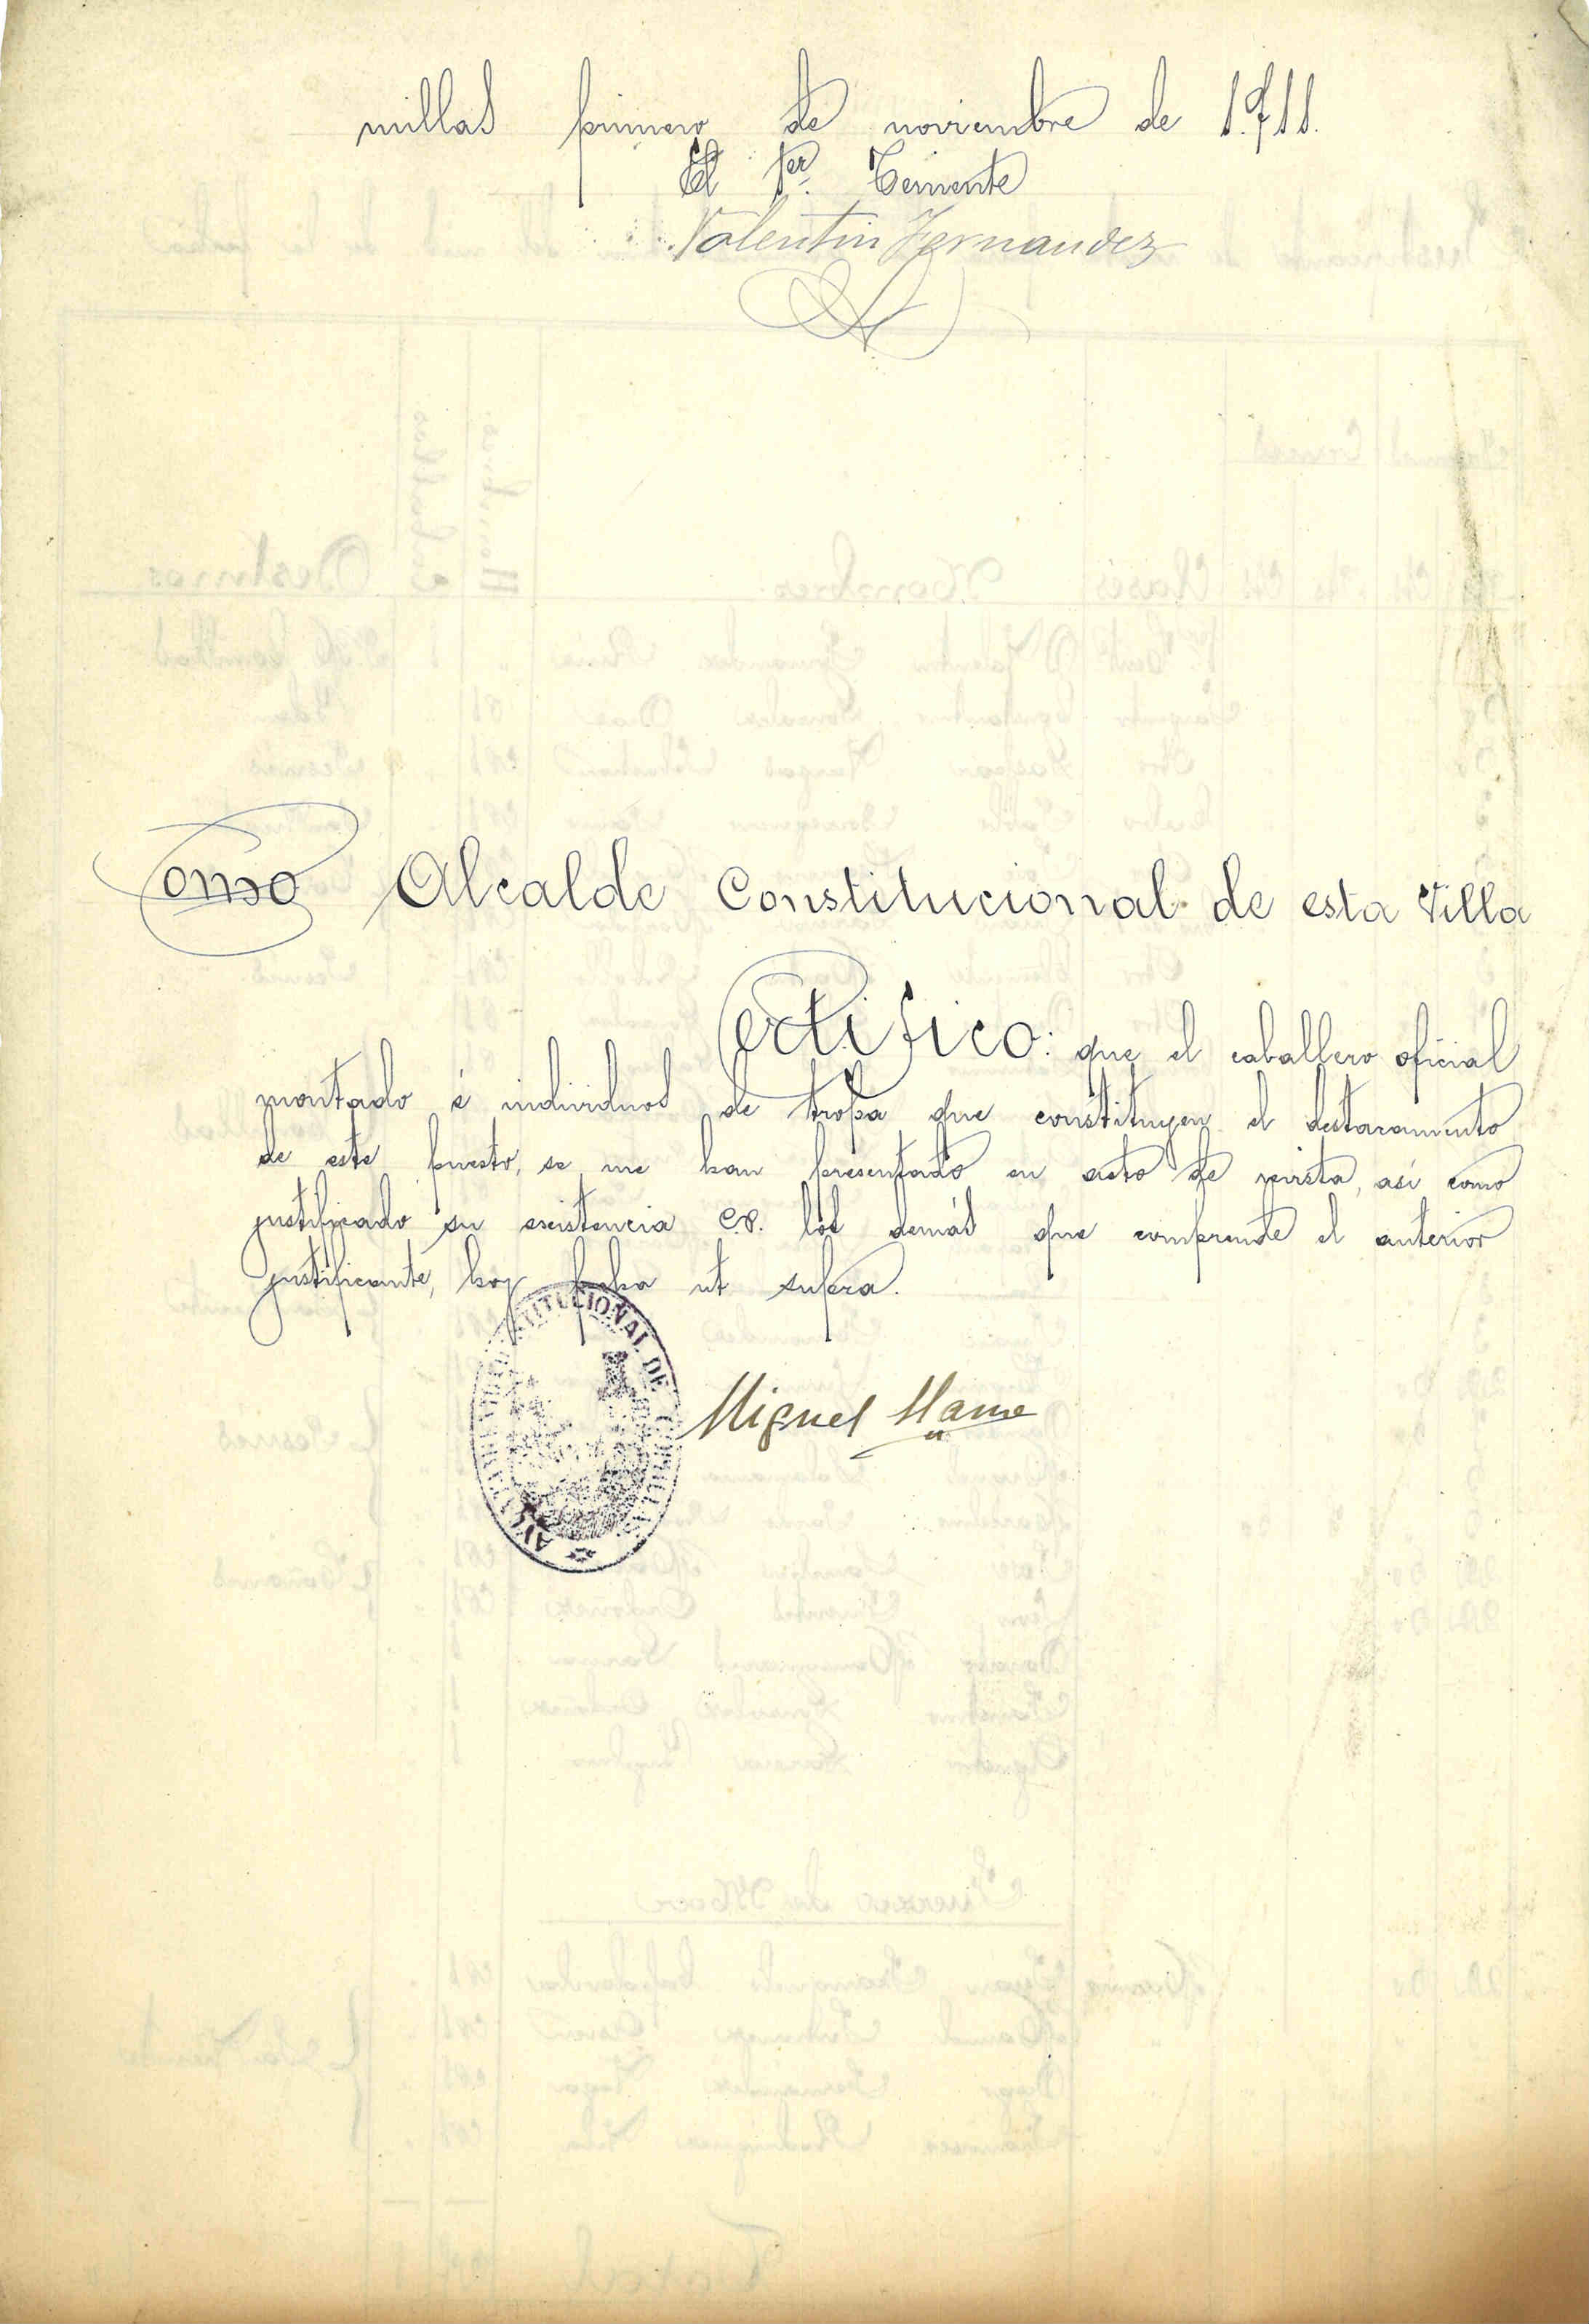 millas primero de noviembre de 1.911.
El 1er. Teniente
Valentin Fernandez
Como Alcalde Constitucional de esta Villa
Certifico: que el caballero oficial
montado é individuos de tropa que constituyen el destacamento
de este puesto, se me han presentado en acto de revista, así como
justificado su existencia los demás que comprende el anterior
justificante, hoy fecha ut supra.
CONSTITUCIONAL DE
Miguel